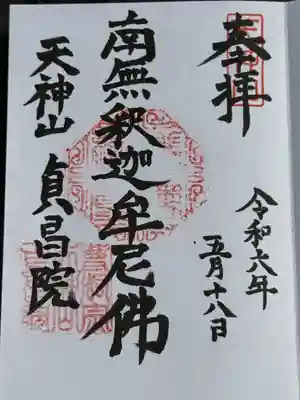 奉拝
令和六年
五月十八日
南無釈迦牟尼佛
天神山
貞昌院